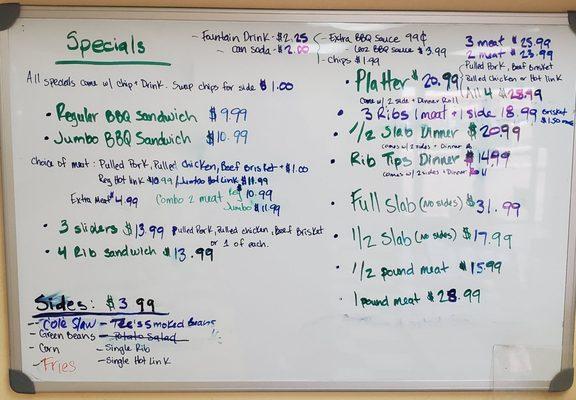 Specials
- Fauntain Drink - $2.25
- can soda - $2.00
- Extra BBQ Sauce 99¢
- 16oz BBQ Sauce $3.99
- Chips $1.99
All specials come w/ chip + Drink. Swap chips for side $1.00
• Regular BBQ Sandwich $9.99
• Jumbo BBQ Sandwich $10.99
Choice of meat: Pulled Pork, Pulled Chicken, Beef Brisket + $1.00
Reg Hot link $10.99 / Jumbo Hot Link $11.99
Extra Meat $4.99
Combo 2 meat Reg 10.99
Jumbo $11.99
• 3 sliders $13.99 Pulled Pork, Pulled chicken, Beef Brisket
or 1 of each.
• 4 Rib sandwich $13.99
Sides: $3.99
- Cole Slaw
- Green Beans
- Corn
- Fries
- Tee's Smoked Beans
- Potato Salad
- Single Rib
- Single Hot Link
3 meat $25.99
2 meat $23.99
• Platter $20.99
Pulled Pork, Beef Brisket
Pulled Chicken or Hot link
All 4 $28.99
come w/ 2 side + Dinner Roll
• 3 Ribs 1 meat + 1 side 18.99 Brisket
$1.50 more
• 1/2 Slab Dinner $20.99
comes w/ 2 sides + Dinner
• Rib Tips Dinner $14.99
comes w/ 2 sides + Dinner
• Full Slab (No sides) $31.99
• 1/2 Slab (No sides) $17.99
• 1/2 pound meat $15.99
• 1 pound meat $28.99